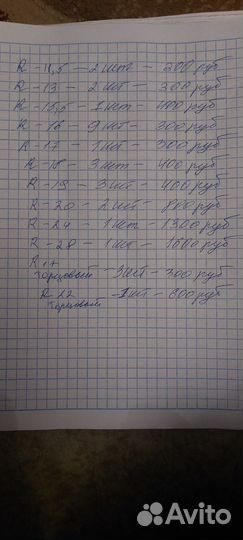 R - 11,5 - 2 шт - 200 руб
R - 13 - 2 шт - 200 руб
R - 15,5 - 1 шт - 400 руб
R - 16 - 9 шт - 300 руб
R - 17 - 1 шт - 300 руб
R - 18 - 3 шт - 400 руб
R - 19 - 3 шт - 400 руб
R - 20 - 2 шт - 800 руб
R - 24 - 1 шт - 1300 руб
R - 28 - 1 шт - 1600 руб
R 17
торцовый - 3 шт - 300 руб
R 22 - 1 шт - 800 руб
торцовый
Avito